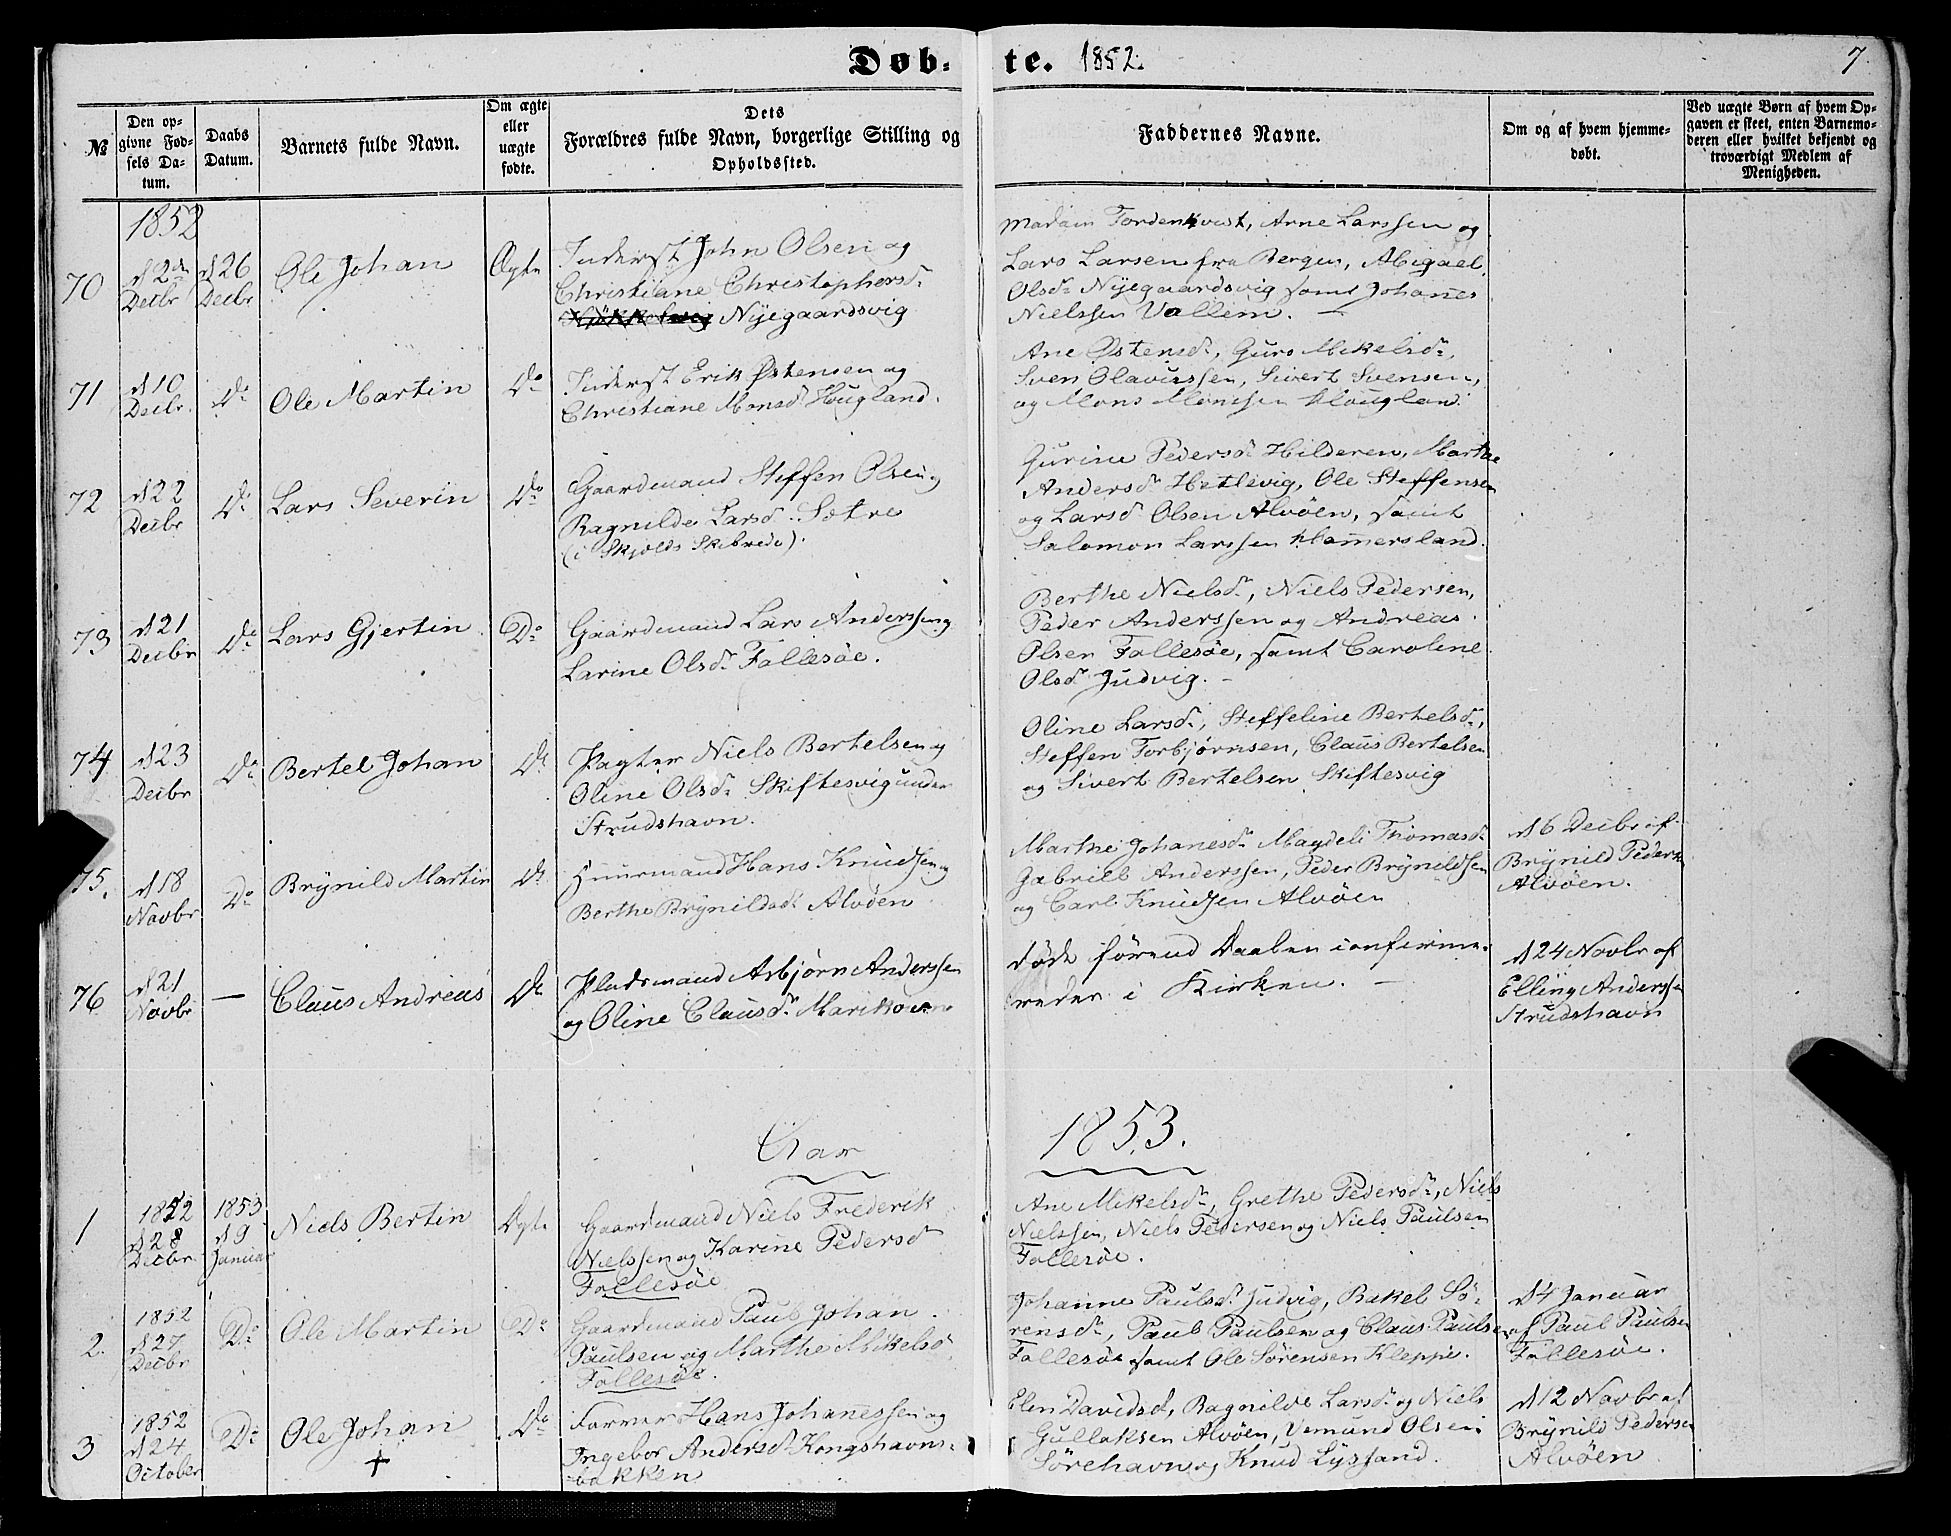 Døb-te. 1852.
7.
№
Den op-
givne Fød-
sels Da-
tum.
Daabs
Datum.
Barnets fulde Navn.
Om ægte
eller
uægte
fødte.
Dets
Forældres fulde Navn, borgerlige Stilling og
Opholdssted.
Faddernes Navne.
Om og af hvem hjemme-
døbt.
Ved uægte Børn af hvem Op-
gaven er skeet, enten Barnemo-
deren eller hvilket bekjendt og
troværdigt Medlem af
Menigheden.
1852
70
d 2den
Decbr
d 26
Decbr
Ole Johan
Ægte
Inderst John Olsen og
Christiane Christophersd.
Nyegaardsvig
Madam Tordenkvist, Arne Larssen og
Lars Larsen fra Bergen, Abigael
Olsdr Nyegaardsvig samt Johanes
Nielssen Vallem. —
71
d 10
Decbr.
Do
Ole Martin
Do
Inderst Erik Østensen og
Christiane Monsd. Hougland.
Ane Østensdr, Guro Mikelsdr,
Sven Olavussen, Sivert Svensen,
og Mons Monssen Houglan.
72
d 22
Decbr
Do
Lars Severin
Do
Gaardmand Steffen Olsen og
Ragnilde Larsd. Sætre
(i Skjolds Skibrede).
Gurine Pedersd. Hilderen, Marthe
Andersdr Hetlevig, Ole Steffensen
og Larsd. Olsen Alvøen, samt
Salomon Larssen Hamersland.
73
d 21
Decbr
Do
Lars Gjertin
Do
Gaardmand Lars Anderssen og
Larine Olsdr Follesøe.
Berthe Nielsdr, Niels Pedersen,
Peder Anderssen og Andreas
Olsen Follesøe, samt Caroline
Olsdr Judvig. -
74
d 23
Decbr
Do
Bertel Johan
Do
Pagter Niels Bertelsen og
Oline Olsdr Skiftesvig under
Strudshavn.
Oline Larsdr, Steffeline Bertelsdr,
Steffen Torbjørnsen, Claus Bertelsen
og Sivert Bertelsen Skiftesvig
75.
d 18
Novbr
Do
Brynild Martin
Do
Huusmand Hans Knudsen og
Berthe Brynildsdr Alvøen
Marthe Johanesdr Magdeli Thomasdr
Gabriel Anderssen, Peder Brynildsen
og Carl Knudsen Alvøen
d 6 Decbr af
Brynild Peders.
Alvøen.
76
d 21
Novbr
—
Claus Andreas
Do
Pladsmand Asbjørn Anderssen
og Oline Clausdr Marikoven
døde førend Daaben confirme-
redes i Kirken. —
d 24 Novbr af
Elling Anderssen
Strudshavn
Aar
1853.
1
1852
d 28
Decbr
1853
d 9
Januar
Niels Bertin
Ægte
Gaardmand Niels Frederik
Nielssen og Karine Pedersd
Follesøe
Ane Mikelsdr, Grethe Pedersdr, Niels
Nielssen, Niels Pedersen og Niels Paulsen
Follesøe.
2.
1852
d 27
Decbr
Do
Ole Martin
Do
Gaardmand Paul Johan
Paulsen og Marthe Mikelsd.
Follesøe.
Johanne Paulsdr Judvig, Rakel Sø-
rensdr, Paul Paulsen og Claus Paulsen
Follesøe samt Ole Sørensen Kleppe.
d 4 Januar
af Paul Paulsen
Follesøe.
3
1852
d 24
October
Do
Ole Johan
+
Do
Farver Hans Johanessen og
Ingebor Andersdr Kongshavns-
bakken
Elen Davidsd, Ragnilde Larsdr og Niels
Gullaksen Alvøen, Vemund Olsen
Sørehavn og Knud Lyssand.
d 12 Novbr af
Brynild Pedersen
Alvøen